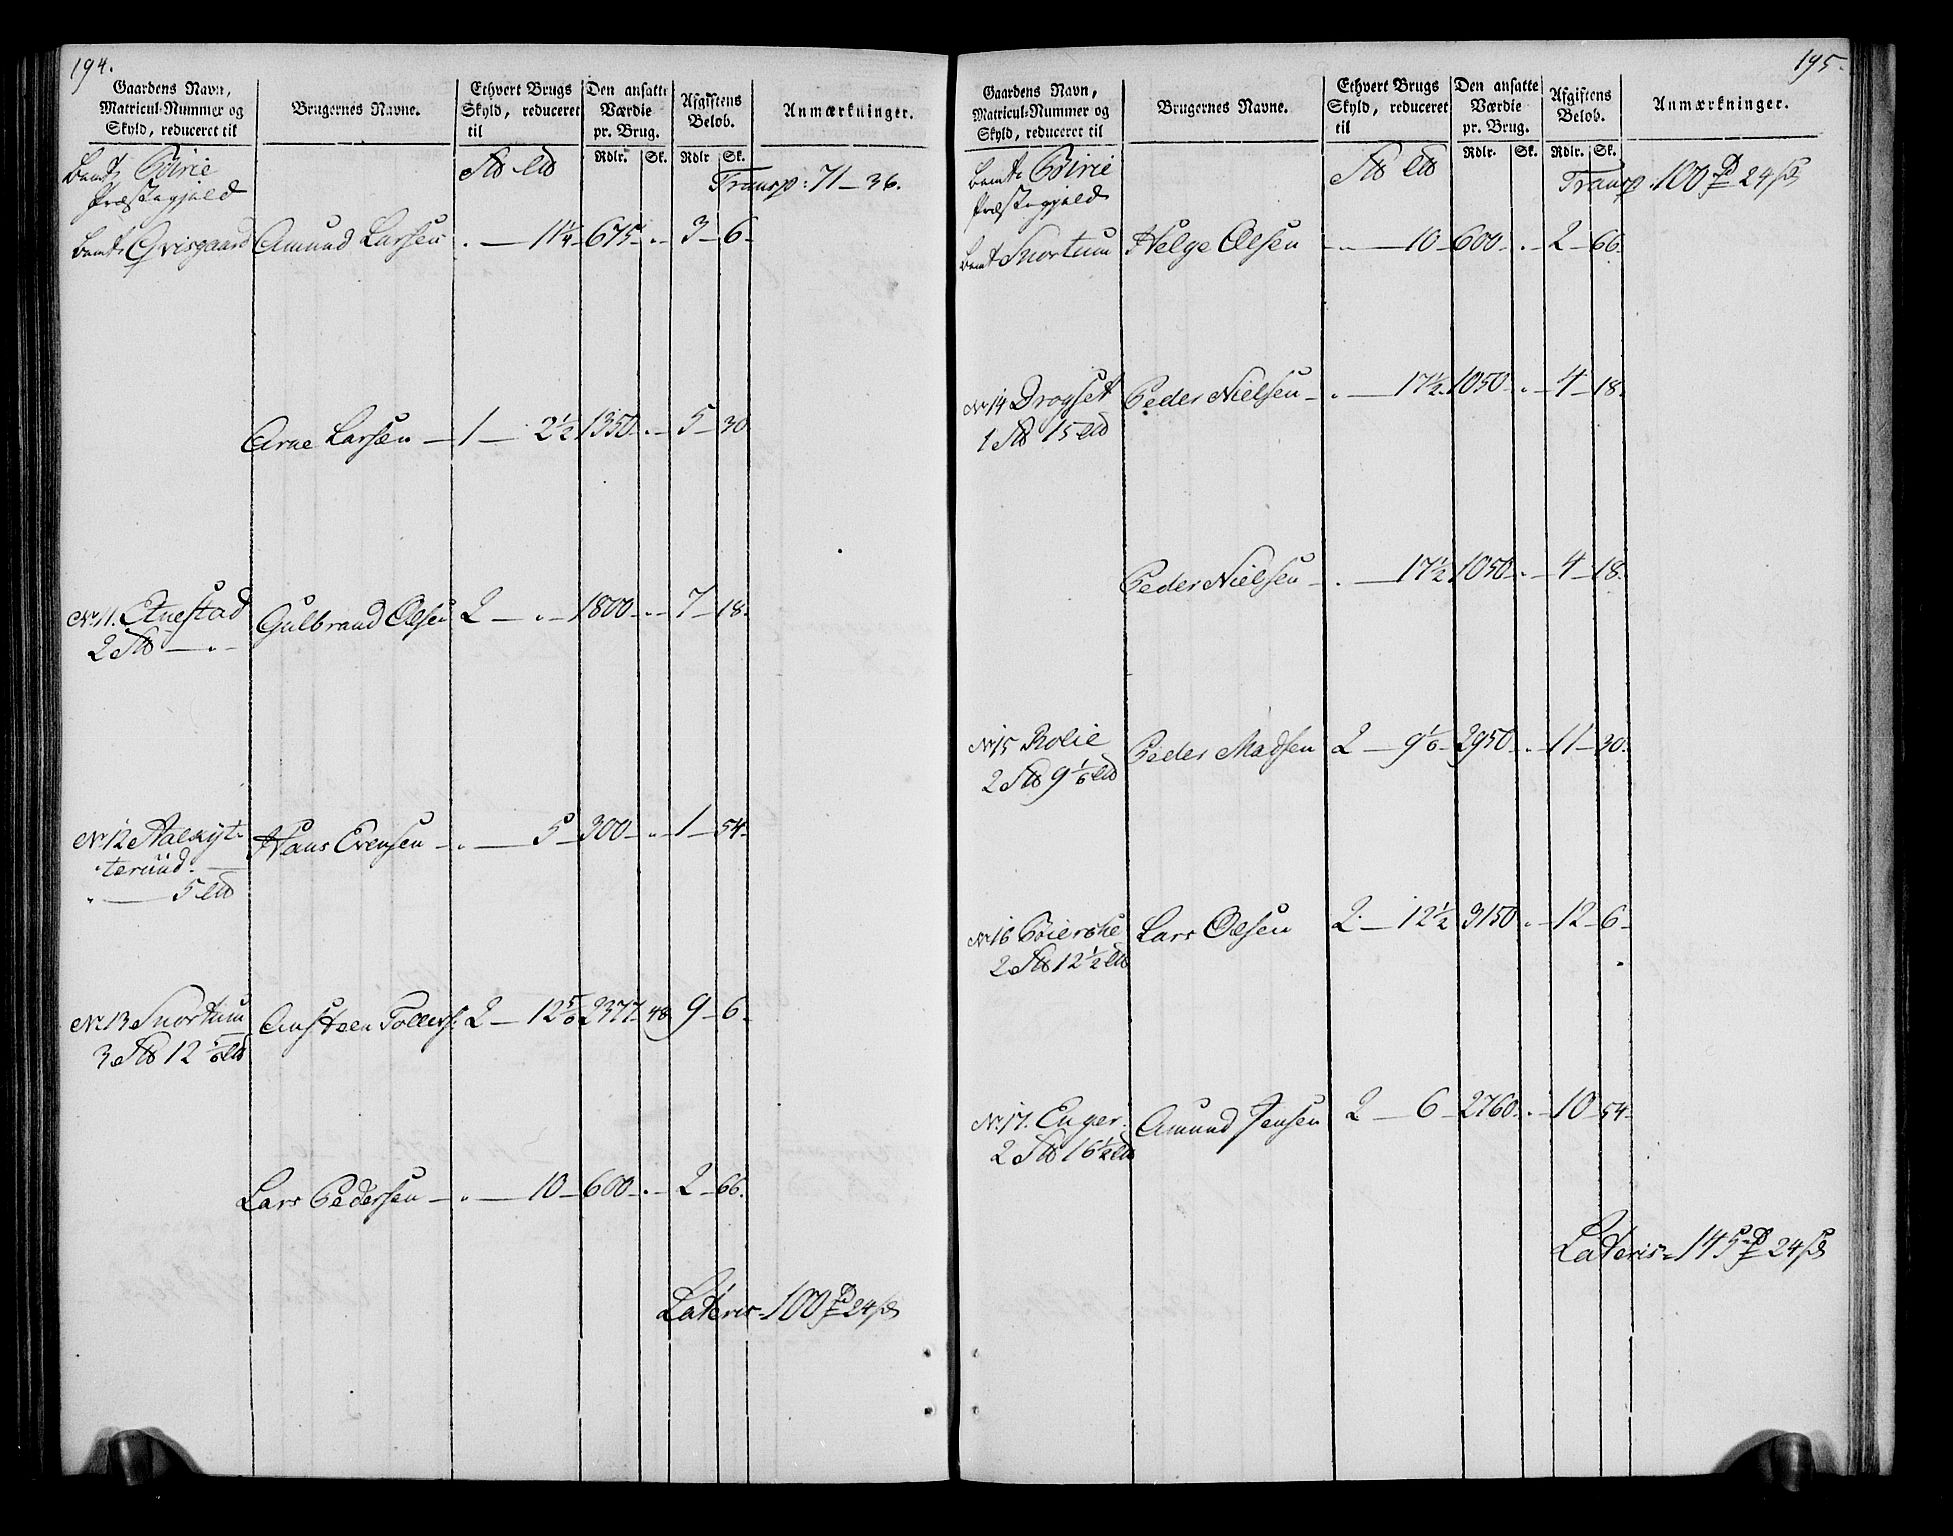 194.
Gaardens Navn, Matricul-Nummer og Skyld, reduceret til | Brugernes Navne. | Ethvert Brugs Skyld, reduceret til | Den ansatte Værdie pr. Brug. Rdlr. Sk. | Afgiftens Beløb. Rdlr Sk. | Anmærkninger.
Bemte Birie
Transp: 71 - 36.
Præstegjeld
Bemte Qvisgaard Amund Larsen . — 11¼ - 675 - .. - 3 - 6 -
Arne Larsen — 1 — 2½ 1350 - .. - 5 - 30
No 11. Enestad Gulbrand Olsen 2 — " - 1800 - .. - 7 - 18.
2 — " -
No 12 Aalskyt- Hans Evensen - " — 5 - 300 - .. - 1 - 54 -
terüüd.
" — 5
No 13 Snortum Ansteen Tollefs: 2 — 12 5/6 2377 - 48 9 - 6 -
3 12 1/6
Lars Pedersen - " — 10 - 600 - . - 2 - 66.
Lateris - 100 24
195.
Gaardens Navn, Matricul-Nummer og Skyld, reduceret til | Brugernes Navne. | Ethvert Brugs Skyld, reduceret til | Den ansatte Værdie pr. Brug. Rdlr. Sk. | Afgiftens Beløb. Rdlr. Sk. | Anmærkninger.
Bemte Birie
Transp. 100 24
Præstegjeld
Bemte Snortum Helge Olsen - " — 10 - 600 - . - 2 - 66.
No 14 Drogset Peder Nielsen - . — 17½ 1050 - . - 4 - 18.
1 15
Peder Nielsen - . — 17½ 1050 - . - 4 - 18.
No 15 Bolie Peder Madsen 2 — 9 1/6 - 2950 - . - 11 - 30.
2 9 1/6
No 16 Lars Olsen 2 — 12½ 3150 . - 12 - 6 -
2 12½
No 17. Enger. Amund Jensen 2 — 6 - 2760 - . - 10 - 54 -
2 16½
Lateris - 145 24